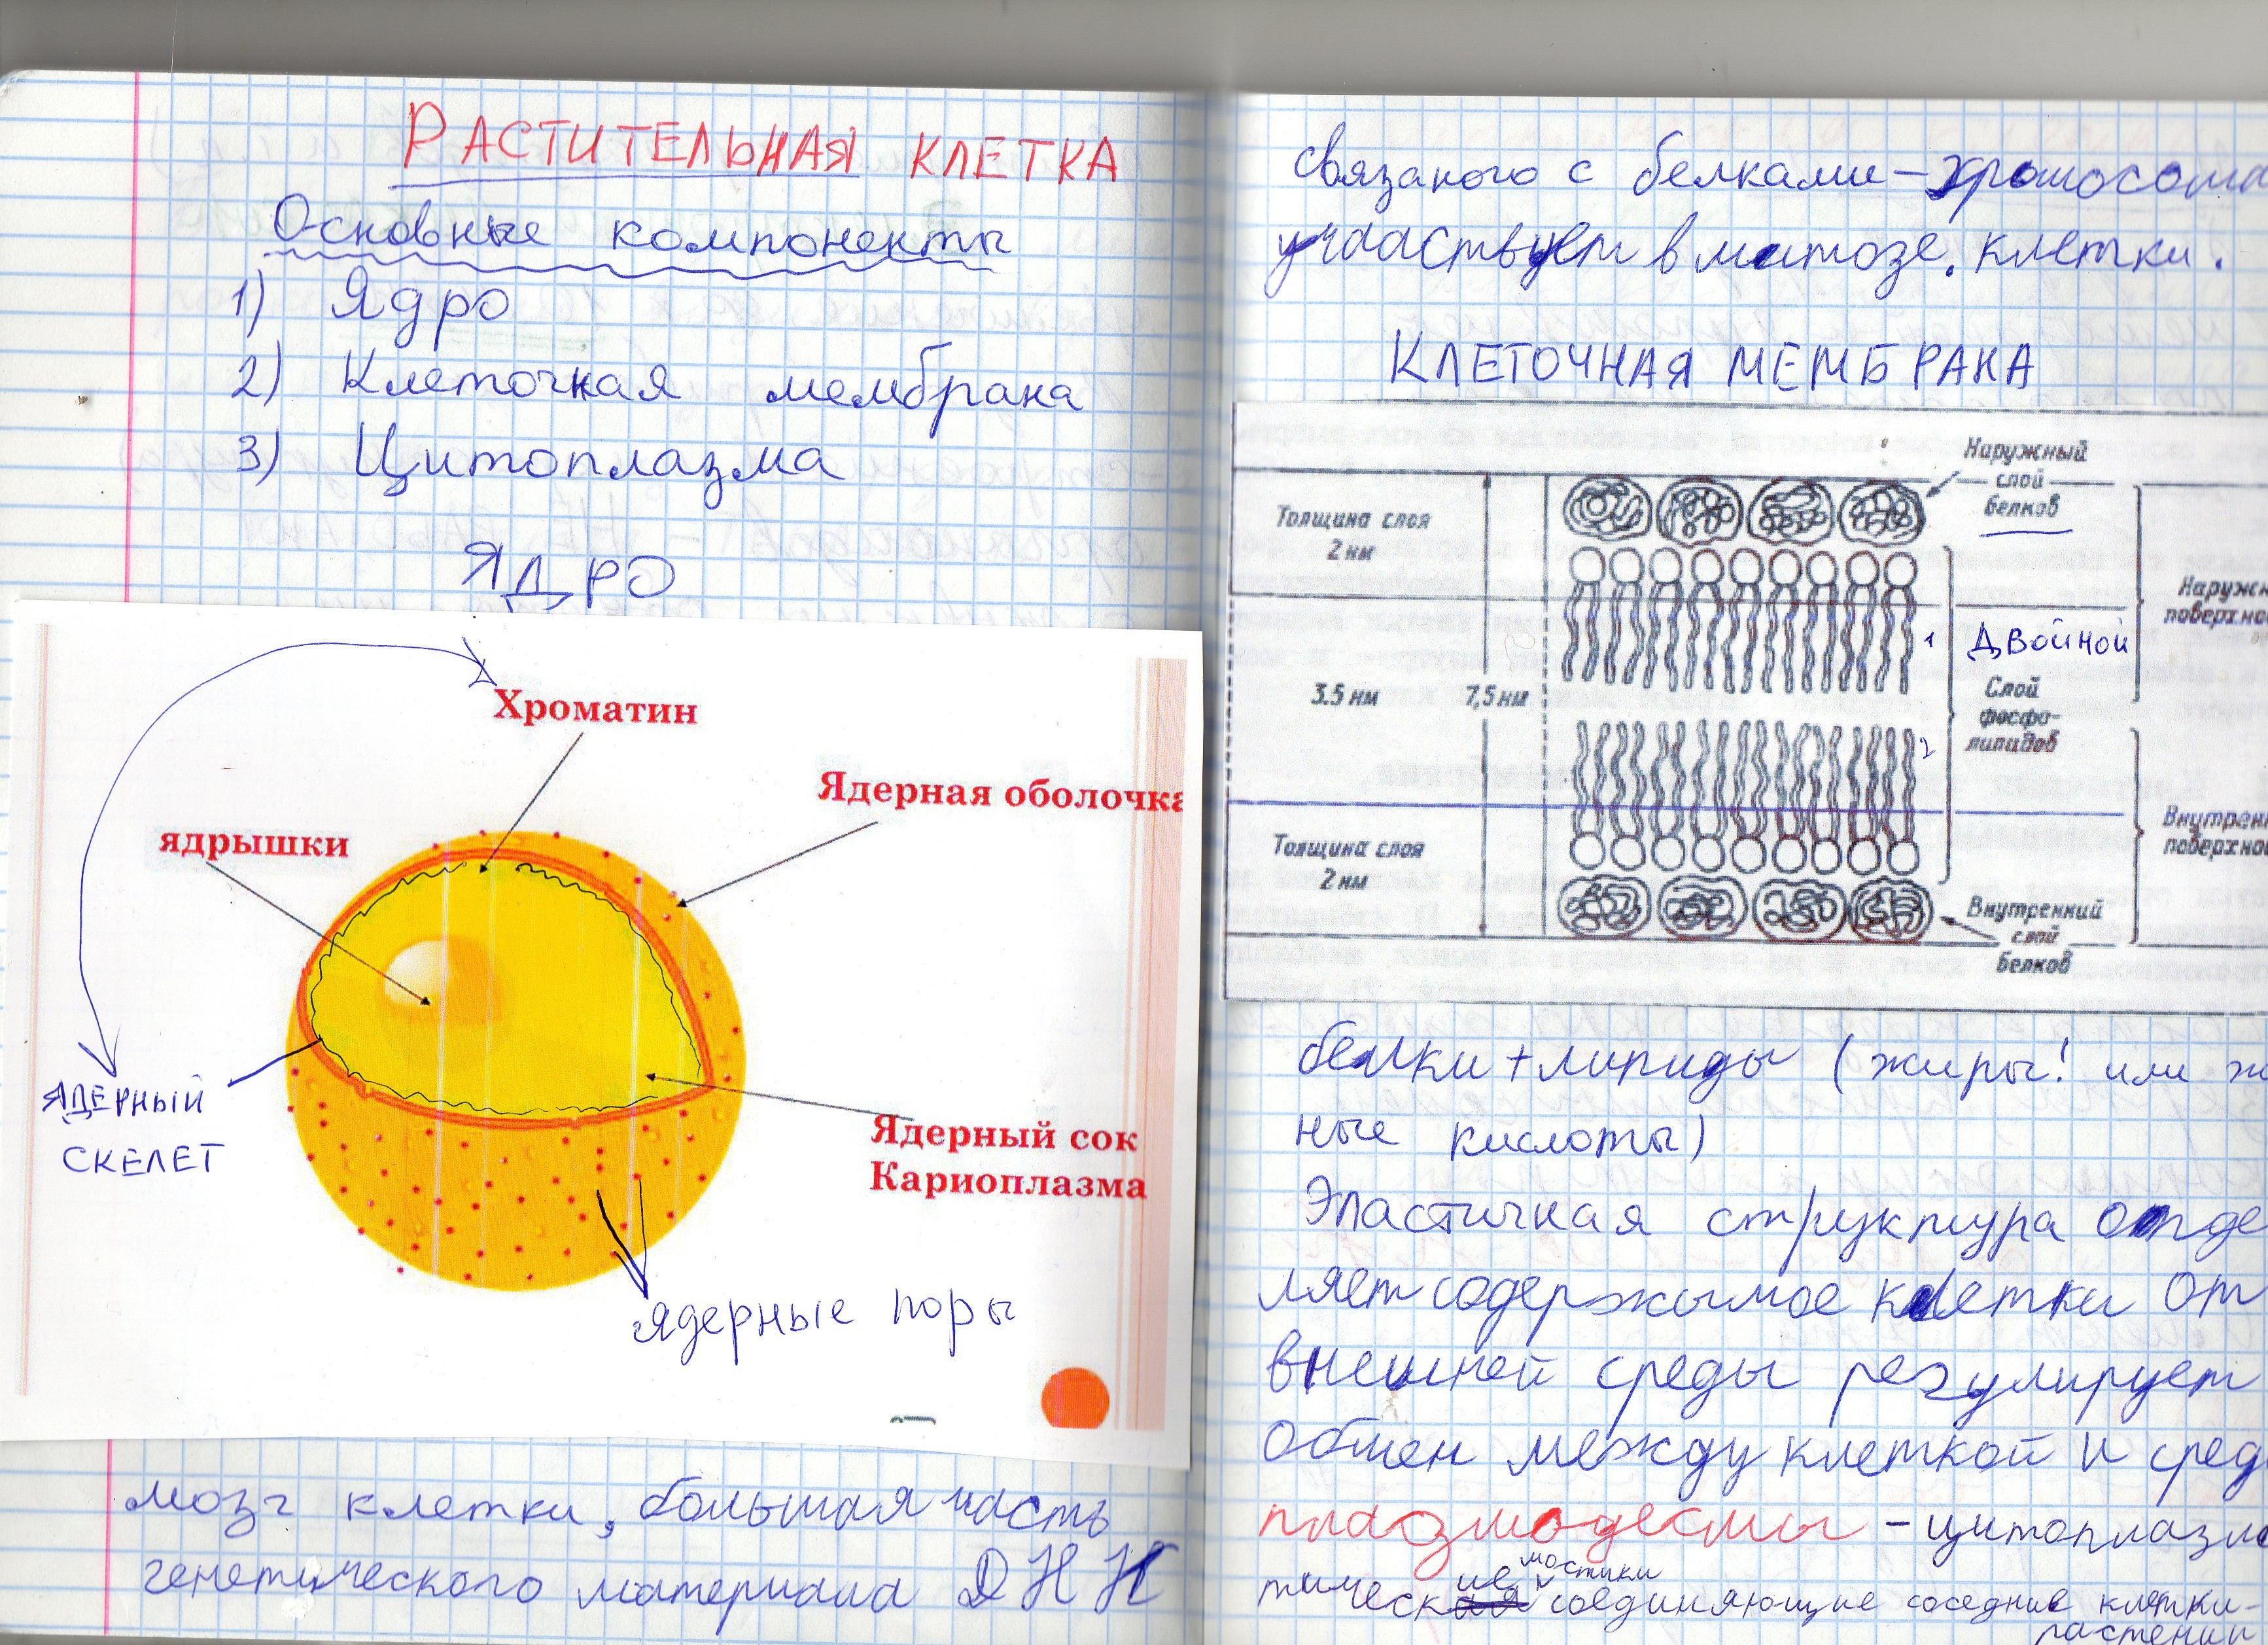 РАСТИТЕЛЬНАЯ КЛЕТКА
Основные компоненты
1) Ядро
2) Клеточная мембрана
3) Цитоплазма
ЯДРО
Хроматин
Ядерная оболочка
ядрышки
ЯДЕРНЫЙ
СКЕЛЕТ
Ядерный сок
Кариоплазма
ядерные поры
мозг клетки, большая часть
генетического материала ДНК
связаного с белками – хромосома
учааствует в митозе. клетки.
КЛЕТОЧНАЯ МЕМБРАНА
Наружный
слой
белков
Толщина слоя
2 нм
Наружн
поверхно
1 ДВОЙНОЙ
3.5 нм
7,5 нм
Слой
фосфо-
липидов
2
Внутрен
поверхно
Толщина слоя
2 нм
Внутренний
слой
белков
белки + липиды (жиры! или ж
ные кислоты)
Эластичная структура отде
ляет содержимое клетки от
внешней среды регулирует
обмен между клеткой и сред
плазмодесмы – цитоплазма
тические мостики соединяющие соседние клетки-
растении